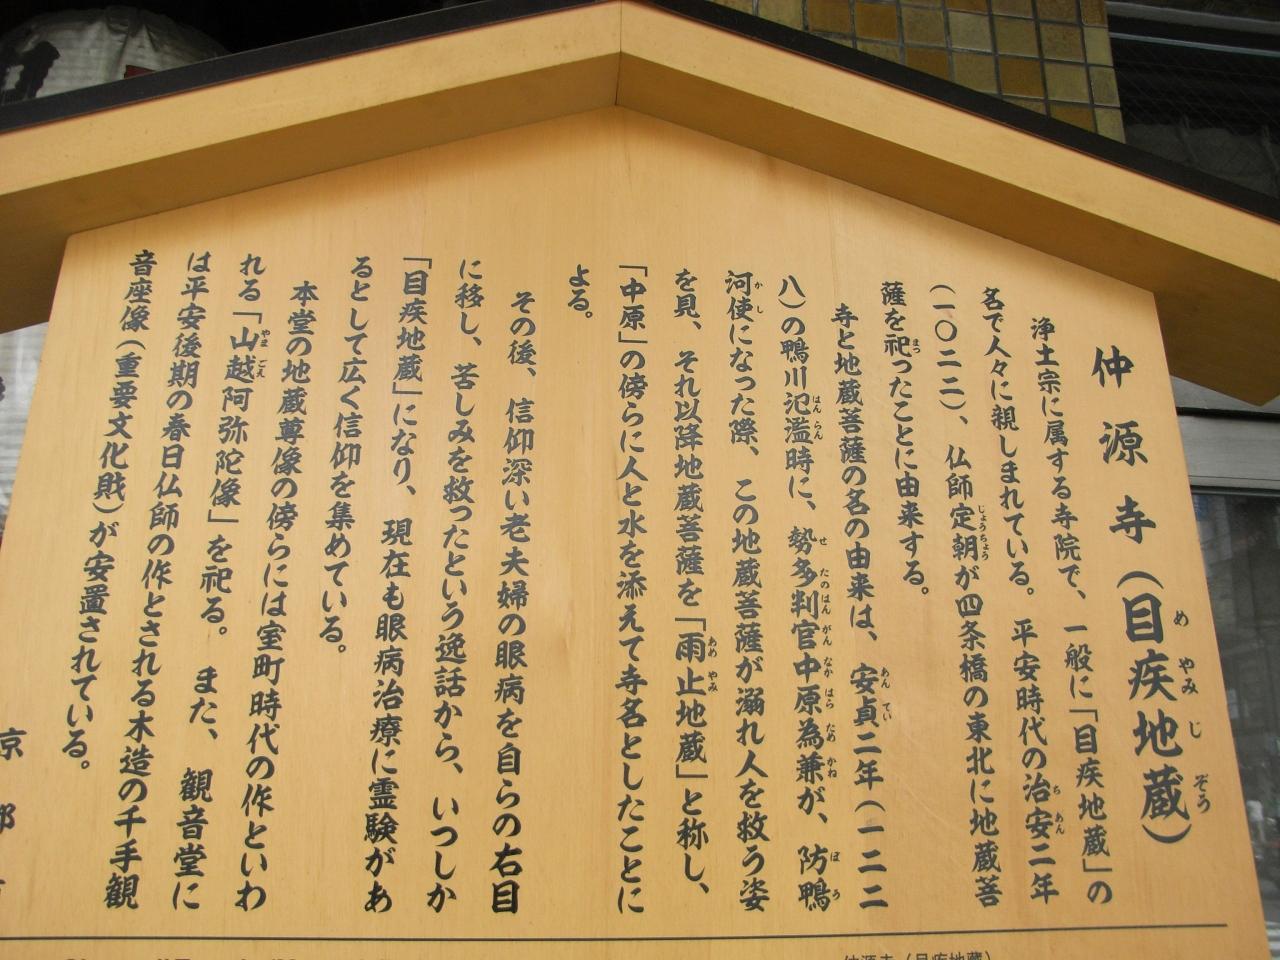 仲源寺（目疾地蔵）
浄土宗に属する寺院で、一般に「目疾地蔵」の
名で人々に親しまれている。平安時代の治安二年
（一〇二二）、仏師定朝が四条橋の東北に地蔵菩
薩を祀ったことに由来する。
寺と地蔵菩薩の名の由来は、安貞二年（一二二
八）の鴨川氾濫時に、勢多判官中原為兼が、防鴨
河使になった際、この地蔵菩薩が溺れ人を救う姿
を見、それ以降地蔵菩薩を「雨止地蔵」と称し、
「中原」の傍らに人と水を添えて寺名としたことに
よる。
その後、信仰深い老夫婦の眼病を自らの右目
に移し、苦しみを救ったという逸話から、いつしか
「目疾地蔵」になり、現在も眼病治療に霊験があ
るとして広く信仰を集めている。
本堂の地蔵尊像の傍らには室町時代の作といわ
れる「山越阿弥陀像」を祀る。また、観音堂に
は平安後期の春日仏師の作とされる木造の千手観
音座像（重要文化財）が安置されている。
京都
仲源寺（目疾地蔵）